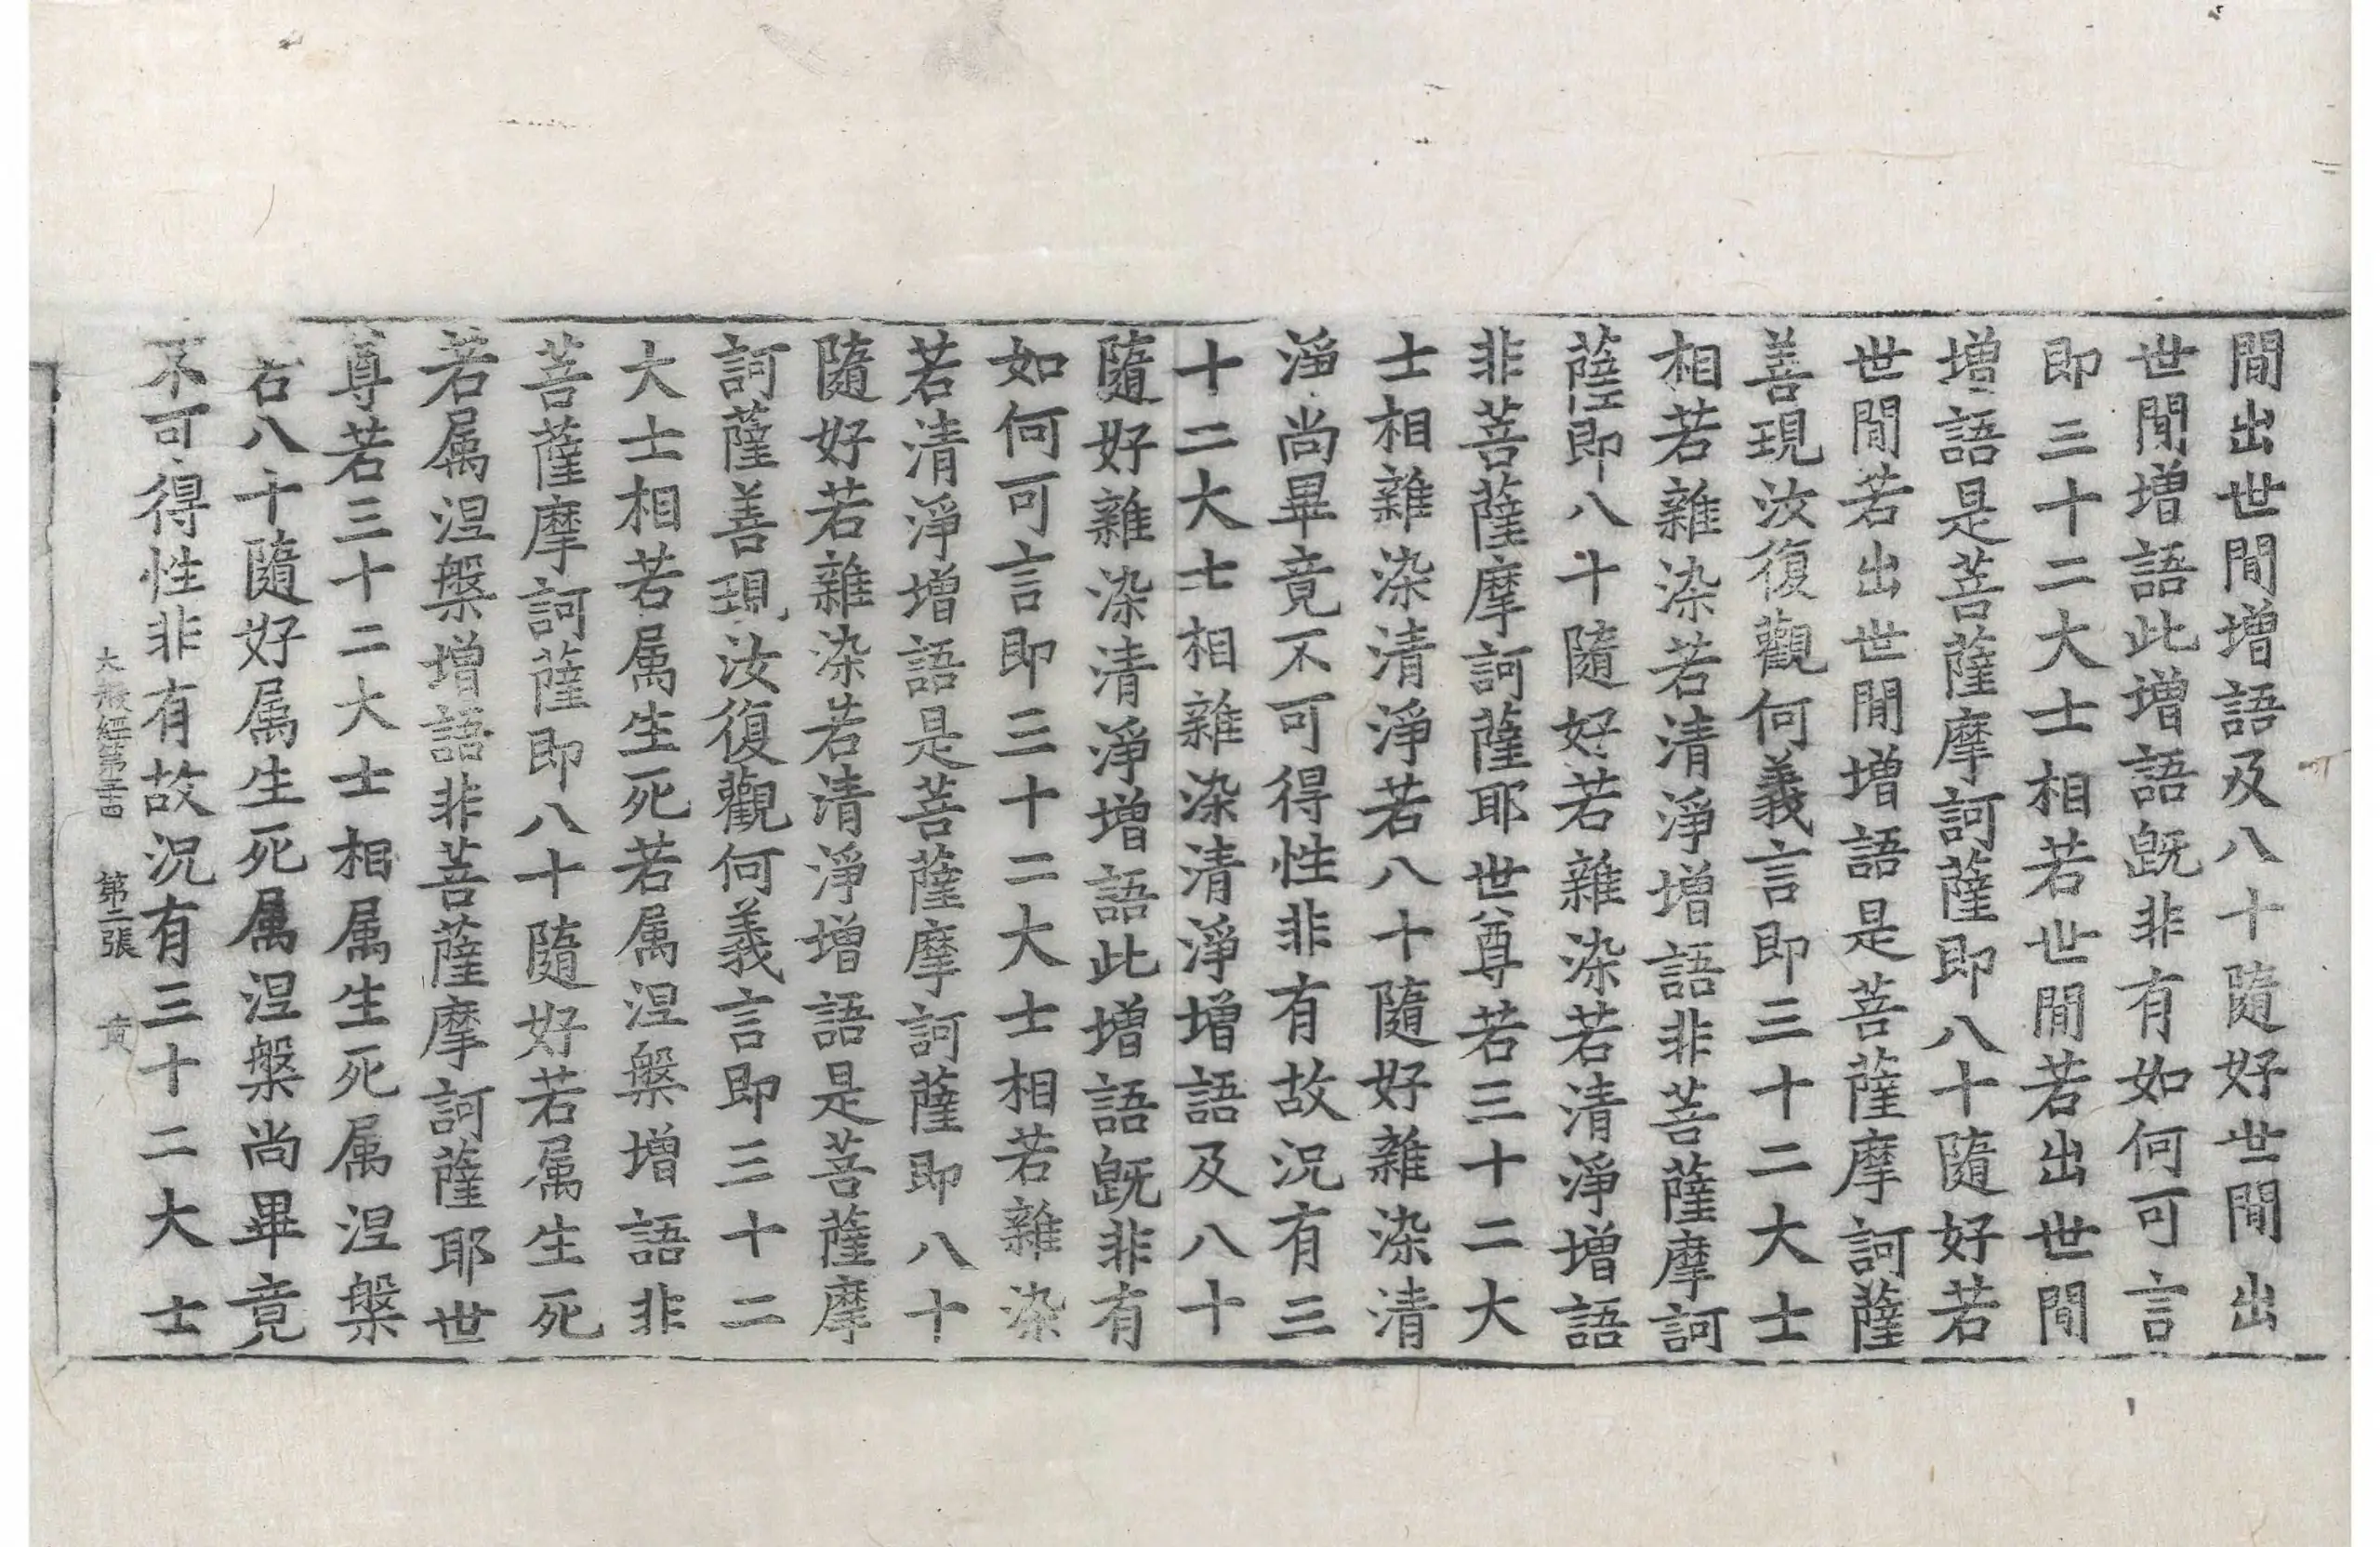 間出世間增語及八十隨好世間出
世間增語此增語旣非有如何可言
即三十二大士相若世間若出世間
增語是菩薩摩訶薩即八十隨好若
世間若出世間增語是菩薩摩訶薩
善現汝復觀何義言即三十二大士
相若雜染若清淨增語非菩薩摩訶
薩即八十隨好若雜染若清淨增語
非菩薩摩訶薩耶世尊若三十二大
士相雜染清淨若八十隨好雜染清
淨尚畢竟不可得性非有故況有三
十二大士相雜染清淨增語及八十
隨好雜染清淨增語此增語旣非有
如何可言即三十二大士相若雜染
若清淨增語是菩薩摩訶薩即八十
隨好若雜染若清淨增語是菩薩摩
訶薩善現汝復觀何義言即三十二
大士相若属生死若属涅槃增語非
菩薩摩訶薩即八十隨好若属生死
若属涅槃增語非菩薩摩訶薩耶世
尊若三十二大士相属生死属涅槃
若八十隨好属生死属涅槃尚畢竟
不可得性非有故況有三十二大士
大般經第三十四 第二張